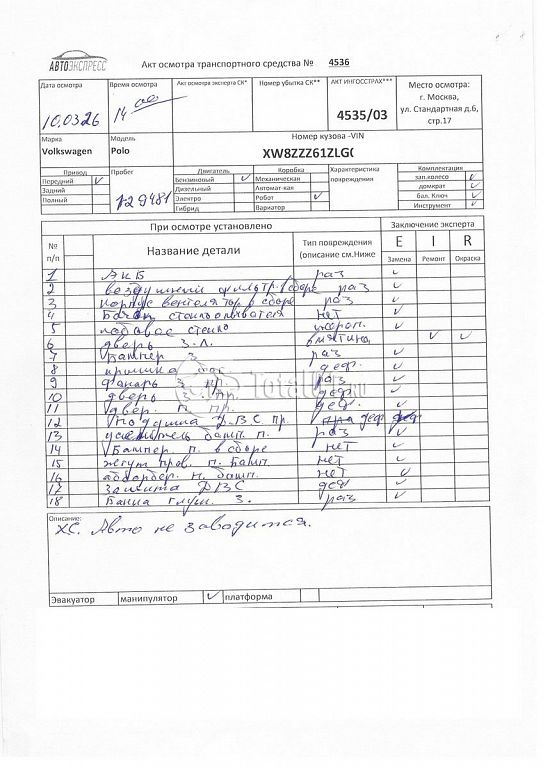 АВТОЭКСПРЕСС
Акт осмотра транспортного средства № 4536
Дата осмотра
10.03.26
Время осмотра
14 00
Акт осмотра эксперта СК*
Номер убытка СК**
АКТ ИНГОССТРАХ***
4535/03
Место осмотра:
г. Москва,
ул. Стандартная д.6,
стр.17
Марка
Volkswagen
Модель
Polo
Номер кузова -VIN
XW8ZZZ61ZLG(
Привод
Передний ✓
Задний
Полный
Пробег
129481
Двигатель
Бензиновый ✓
Дизельный
Электро
Гибрид
Коробка
Механическая
Автомат-кая
Робот ✓
Вариатор
Характеристика
повреждения
Комплектация
зап.колесо ✓
домкрат ✓
бал. Ключ ✓
Инструмент ✓
№
п/п
При осмотре установлено
Название детали
Тип повреждения
(описание см.Ниже
Заключение эксперта
E I R
Замена Ремонт Окраска
1 АКБ раз ✓
2 воздушный фильтр в сборе раз ✓
3 корпус вентелятор в сборе раз ✓
4 Бачок стеклоомывателя нет ✓
5 лобовое стекло ✓
6 дверь З.Л. вмятина ✓ ✓
7 Бампер З раз ✓
8 крышка баг деф. ✓
9 фонарь З пр. раз ✓
10 дверь З. пр. деф ✓
11 двер. П. пр. деф. ✓
12 подушка ДВС пр. деф
13 усилитель бамп. п. раз ✓
14 Бампер. п в сборе нет ✓
15 жгут пров. п. Бамп. нет ✓
16 абсорбер. п. бамп. нет ✓
17 защита ДВС деф ✓
18 Банка глуш. З. раз ✓
Totalcar.ru
Описание:
ХС. Авто не заводится.
Эвакуатор манипулятор ✓ платформа